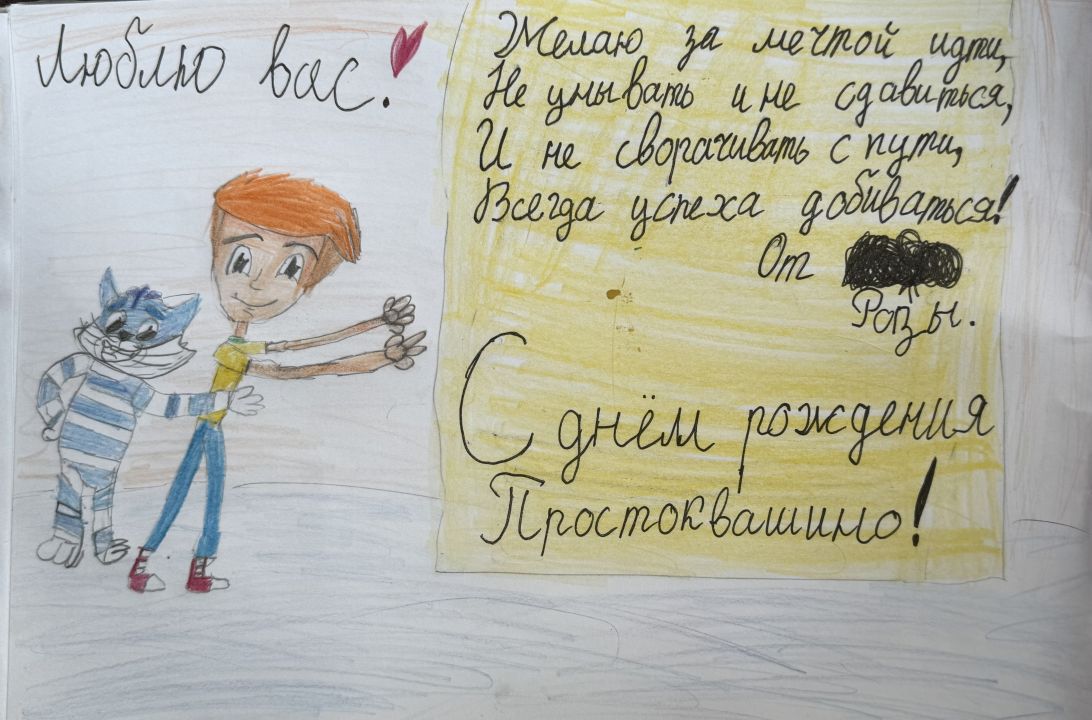 Люблю вас!
Желаю за мечтой идти,
Не унывать и не сдавиться,
И не сворачивать с пути,
Всегда успеха добиваться!
От
Розы.
С днём рождения
Простоквашино!